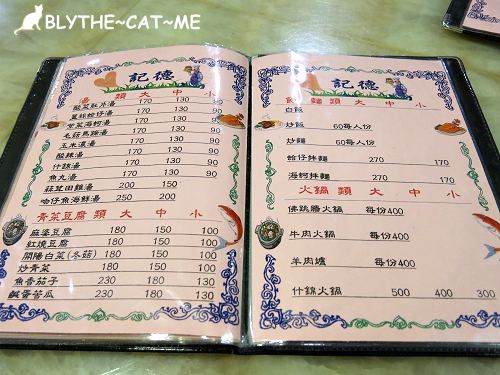 BLYTHE~CAT~ME
記德
湯 類 大 中 小
酸菜肚片湯 170 130 90
菜脯蛤仔湯 170 130 90
紫菜海蚵湯 170 130 90
毛菇馬蹄湯 170 130 90
玉米濃湯 170 130 90
酸辣湯 170 130 90
什錦湯 170 130 90
魚丸湯 170 130 90
蒜茸田雞湯 200 150
咖仔魚海鮮湯 250 200
青菜豆腐 類 大 中 小
麻婆豆腐 180 150 100
紅燒豆腐 180 150 100
開陽白菜(冬菇) 180 150 100
炒青菜 180 150 100
魚香茄子 230 180 130
鹹蛋苦瓜 230 180 130
記德
飯 麵 類 大 中 小
白飯
炒飯 60每人份
炒麵 60每人份
蛤仔拌麵 270 170
海蚵拌麵 270 170
火鍋 類 大 中 小
佛跳牆火鍋 每份400
牛肉火鍋 每份400
羊肉爐 每份400
什錦火鍋 500 400 300